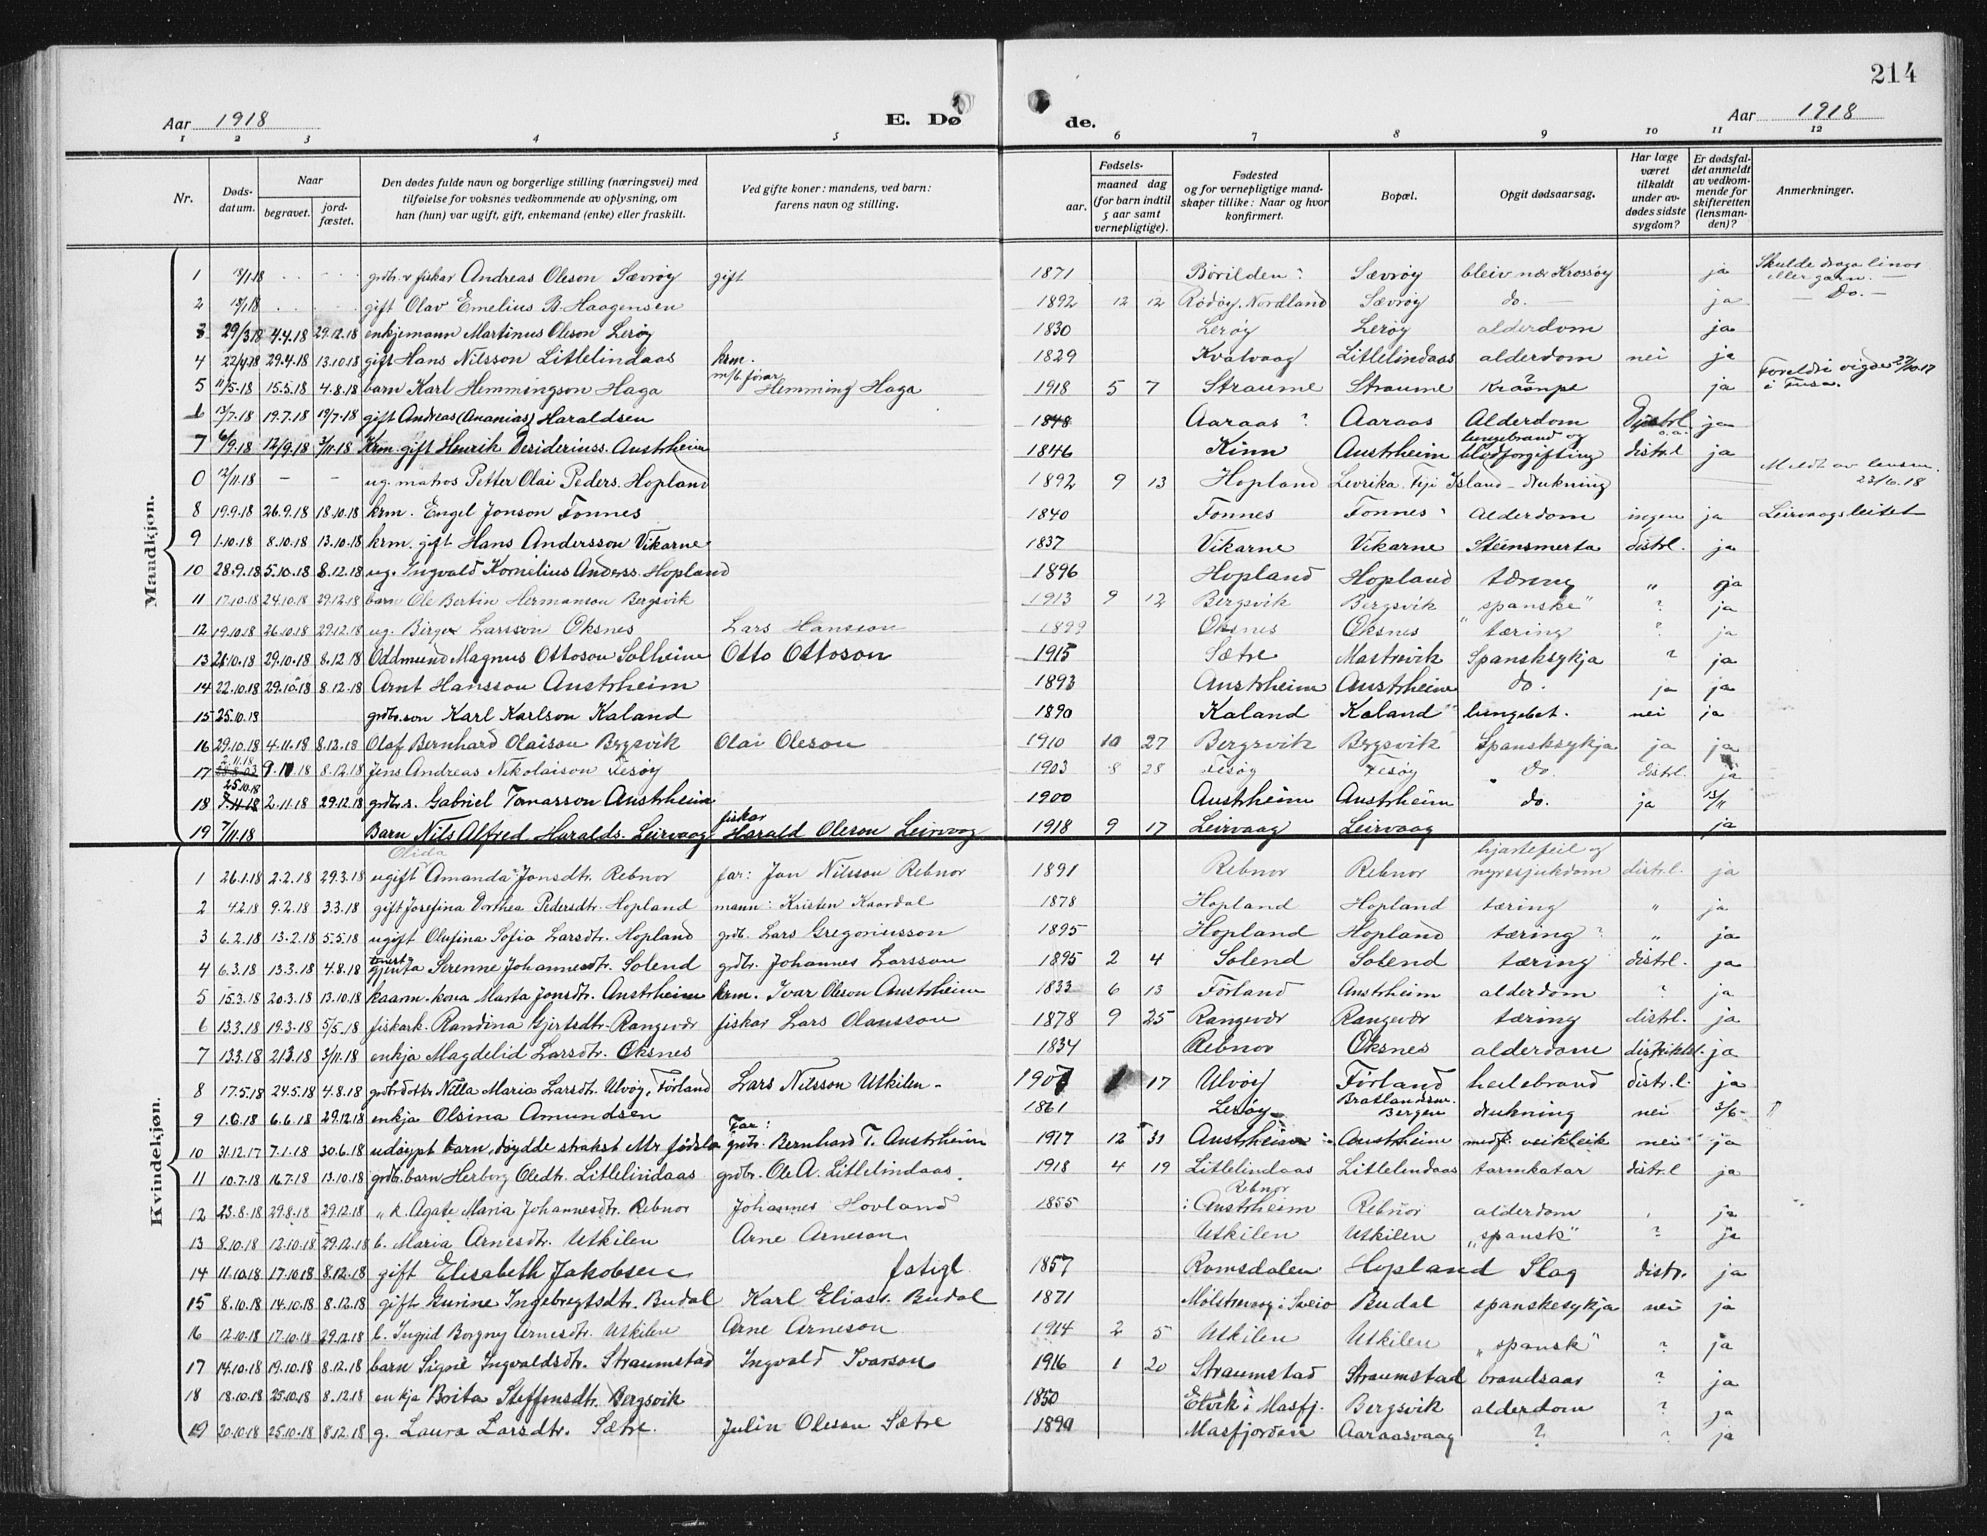 214
Aar 1918 E. Dø de. Aar 1918
1 2 3 4 5 6 7 8 9 10 11 12
Nr. Døds-datum. Naar begravet. jord-fæstet. Den dødes fulde navn og borgerlige stilling (næringsvei) med tilføielse for voksnes vedkommende av oplysning, om han (hun) var ugift, gift, enkemand (enke) eller fraskilt. Ved gifte koner: mandens, ved barn: farens navn og stilling. Fødsels- aar. maaned dag (for barn indtil 5 aar samt vernepligtige). Fødested og for vernepligtige mand-skaper tillike: Naar og hvor konfirmert. Bopæl. Opgit dødsaarsag. Har læge været tilkaldt under av-dødes sidste sygdom? Er dødsfal-det anmeldt av vedkom-mende for skifteretten (lensman-den)? Anmerkninger.
Mandkjøn.
1 18/1 18 grdbr. & fiskar Andreas Oleson Sævrøy gift 1871 Børilden? Sævrøy bleiv nær Krossøy ja Skulde draga linor eller garn.
2 18/1 18 gift Olav Emelius B. Haagensen 1892 12 12 Rødøy, Nordland Sævrøy do. ja — Do. —
3 29/3 18 4.4.18 29.12.18 enkjemann Martinus Oleson Lerøy 1830 Lerøy Lerøy alderdom ja
4 22/4 18 29.4.18 13.10.18 gift Hans Nilsson Litlelindaas krm. 1829 Kvalvaag Litlelindaas alderdom nei ja
5 11/5.18 15.5.18 4.8.18 barn Karl Hemmingson Haga m/b. førar Hemming Haga 1918 5 7 Straume Straume Krampe ? ja Foreldri vigde 27/10 17 i Fusa.
6 13/7.18 19.7.18 19/7.18 gift Andreas (Ananias) Haraldsen 1848 Aaraas ? Aaraas Alderdom Distrl. ja
7 6/9.18 12/9.18 3/11.18 Krm. gift Henrik Desideriuss. Austrheim 1846 Kinn Austrheim lungebrand og blodforgifting distrl ja
0 2/11.18 — — ug. matros Petter Olai Peders. Hopland 1892 9 13 Hopland Levrika. Fiji Island — drukning Meldt av lensm. 23/10.18
8 19.9.18 26.9.18 18.10.18 krm. Engel Jonson Fonnes 1840 Fonnes Fonnes Alderdom ingen ja Leirvaagsleitet
9 1.10.18 8.10.18 13.10.18 krm. gift Hans Andersson Vikarne 1837 Vikarne Vikarne Steinsmerta distrl. ja
10 28.9.18 5.10.18 8.12.18 ug. Ingvald Kornelius Anderss. Hopland 1896 Hopland Hopland tæring " ja
11 17.10.18 24.10.18 29.12.18 barn Ole Bertin Hermanson Bergsvik 1913 9 12 Bergsvik Bergsvik "spanske" ? ja
12 19.10.18 26.10.18 29.12.18 ug. Birger Larsson Oksnes Lars Hansson 1899 Oksnes Oksnes tæring ? ja
13 21.10.18 29.10.18 8.12.18 Oddmund Magnus Ottoson Solheim Otto Ottoson 1915 Sætre Mastrevik Spansksykja ? ja
14 22.10.18 29.10.18 8.12.18 Arnt Hansson Austrheim 1893 Austrheim Austrheim do. ja ja
15 25.10.18 grdbr.son Karl Karlson Kaland 1890 Kaland Kaland lungebet. nei ja
16 29.10.18 4.11.18 8.12.18 Olaf Bernhard Olaison Brgsvik Olai Oleson 1910 10 27 Bergsvik Brgsvik Spansksykja ja ja
17 9.11.18 8.12.18 Jens Andreas Nikolaison Fesøy 1903 8 28 Fesøy Fesøy Do. distrl. ja
18 25.10.18 2.11.18 29.12.18 grdbr.s. Gabriel Tomasson Austrheim 1900 Austrheim Austrheim do. ja 13/11
19 7/11.18 Barn Nils Alfred Haralds. Leirvaag fiskar Harald Oleson Leirvaag 1918 9 17 Leirvaag Leirvaag ja
Kvindekjøn.
1 26.1.18 2.2.18 29.3.18 ugift Amanda Olida Jonsdtr. Rebnor far: Jon Nilsson Rebnor 1891 Rebnor Rebnor hjartefeil og nyresjukdom distrl. ja
2 4.2.18 9.2.18 3.3.18 gift Josefina Dorthea Pedersdtr. Hopland mann: Kristen Kaardal 1878 Hopland Hopland tæring " ja
3 6.2.18 13.2.18 5.5.18 ugift Olufina Sofia Larsdtr. Hopland grdb. Lars Gregoriusson 1895 Hopland Hopland tæring ? " ja
4 6.3.18 13.3.18 4.8.18 tenest gjenta Serenne Johannesdtr. Solend grdbr. Johannes Larsson 1895 2 4 Solend Solend tæring distrl. ja
5 15.3.18 20.3.18 13.10.18 kaarm.kona Marta Jonsdtr. Austrheim krm. Ivar Oleson Austrheim 1833 6 13 Førland Austrheim alderdom ? ja
6 13.3.18 19.3.18 5/5.18 fiskark. Randina Gjertsdtr. Rangevær fiskar Lars Olausson 1878 9 25 Rangevær Rangevær tæring distrl. ja
7 13.3.18 21.3.18 3/11.18 enkja Magdelid Larsdtr. Oksnes 1834 Rebnor Oksnes alderdom distriktsl. ja
8 17.5.18 24.5.18 4.8.18 grdbrdotr Nilla Maria Larsdtr. Ulvøy, Førland Lars Nilsson Utkilen 1907 1 17 Ulvøy Førland heilebrand distr.l. ja
9 1.6.18 6.6.18 29.12.18 enkja Olsina Amundsen 1861 Lerøy Bratlandsm. Bergen drukning nei 3/6
10 31.12.17 7.1.18 30.6.18 udøypt barn, døydde strakst etter fødsla Far: grdbr. Bernhard T. Austrheim 1917 12 31 Austrheim Austrheim medf. veikleik nei ja
11 10.7.18 16.7.18 13.10.18 grdbr. barn Herborg Oledtr. Litlelindaas grdbr. Ole A. Litlelindaas 1918 4 19 Litlelindaas Litlelindaas tarmkatar distr.l ja
12 23.8.18 29.8.18 29.12.18 „ k. Agate Maria Johannesdtr. Rebnor Johannes Hovland 1855 Rebnor Austrheim Rebnor alderdom ja
13 8.10.18 12.10.18 29.12.18 b. Maria Arnesdtr. Utkilen Arne Arneson Utkilen Utkilen „spansk" ? ja
14 11.10.18 17.10.18 8.12.18 gift Elisabeth Jakobsen fatigl. 1857 Romsdalen Hopland Slag distr. ja
15 8.10.18 14.10.18 8.12.18 gift Gurine Ingebregtsdtr. Budal Karl Eliasr. Budal 1871 i Sveio Budal spanskesykja nei ja
16 12.10.18 17.10.18 29.12.18 b. Ingrid Borgny Arnesdtr. Utkilen Arne Arneson 1914 2 5 Utkilen Utkilen „spansk" ? ja
17 14.10.18 19.10.18 8.12.18 barn Signe Ingvaldsdtr. Straumstad Ingvald Ivarson 1916 1 20 Straumstad Straumstad brandsaar ? ja
18 18.10.18 25.10.18 8.12.18 enkja Brita Steffensdtr. Bergsvik 1850 Elvik i Masfj. Bergsvik alderdom ? ja
19 20.10.18 25.10.18 8.12.18 g. Laura Larsdtr. Sætre. Julin Oleson Sætre 1890 Masfjorden Aaraasvaag ? ? ja